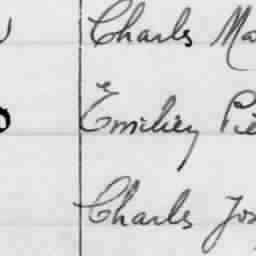 Charles Ma
Emilien Pie
Charles Jos